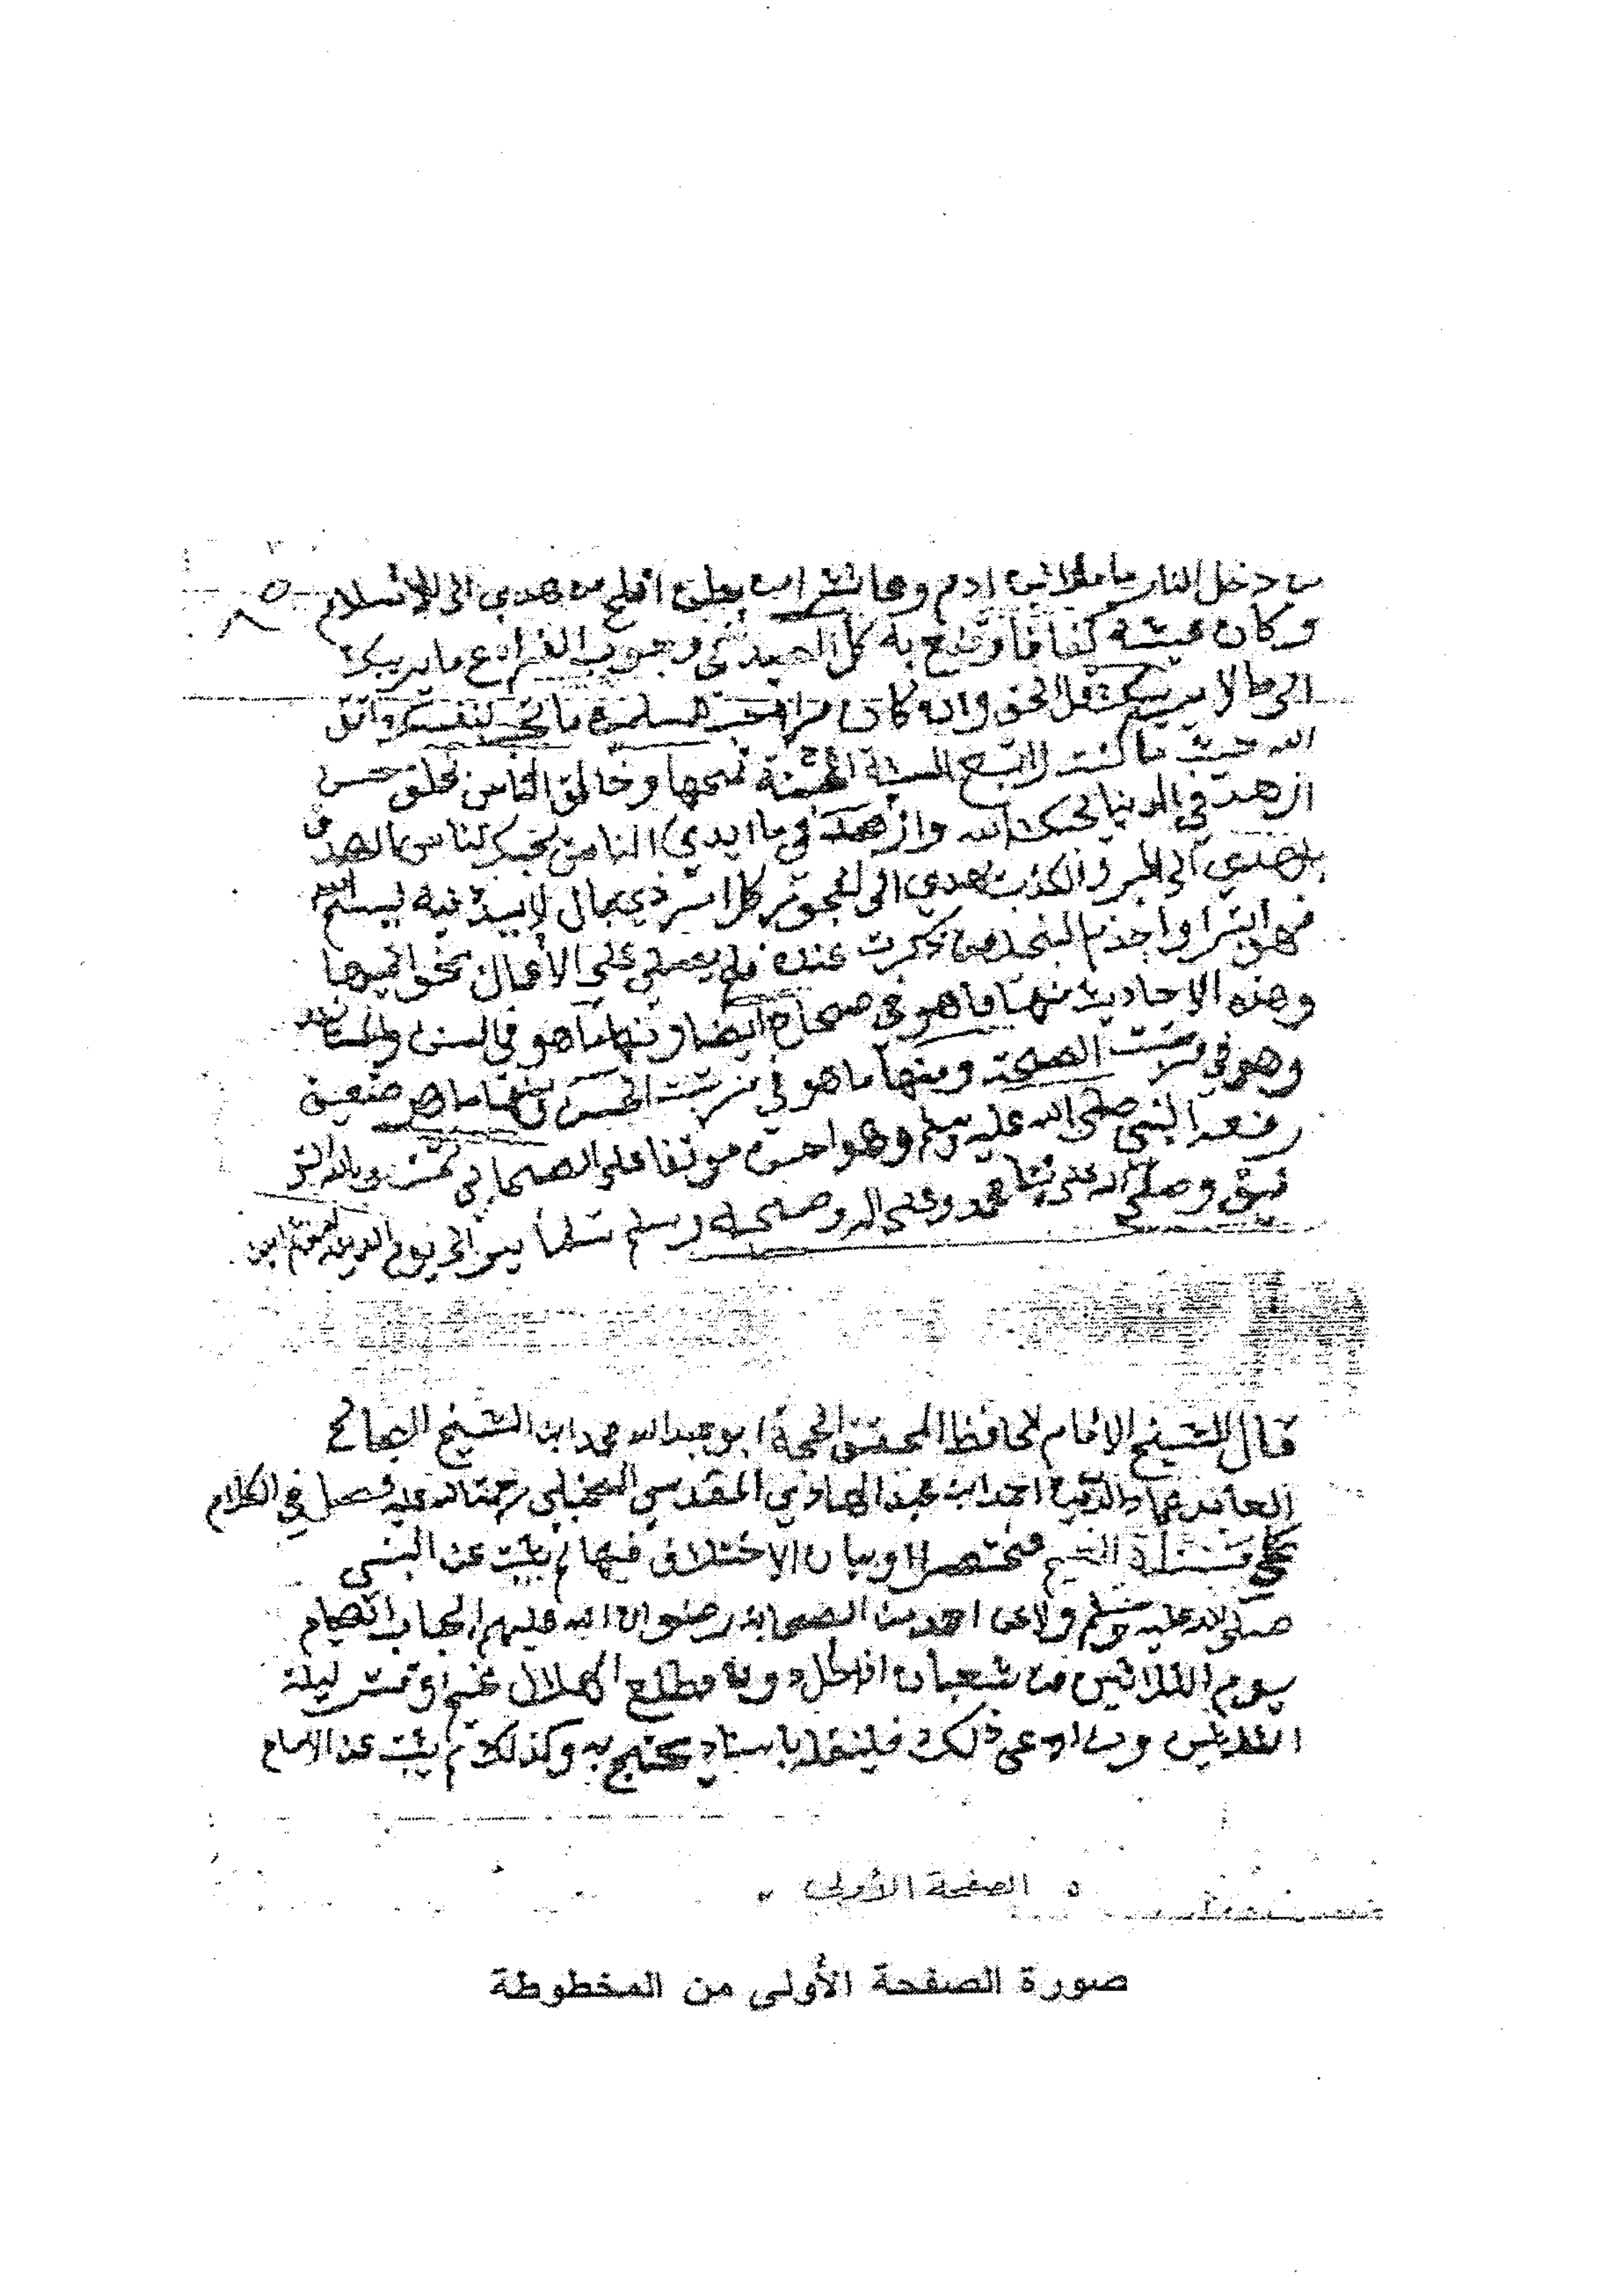 دخل النار ما ملأ ابن ادم وعاء شرا من بطن افلح من هدي الى الاسلام
وكان عيشه كفافا وقنع به كل الصيد في جوف الفرا دع ما يريبك
الى ما لا يريبك قل الحق وان كان مرا احب للمسلمين ما تحب لنفسك واتق
الله حيث ما كنت لاتبع السيئة الحسنة تمحها وخالق الناس بخلق حسن
ازهد في الدنيا يحبك الله وازهد في ما ايدي الناس يحبك الناس الصدق
يهدي الى البر والكذب يهدي الى الفجور كل امر ذي بال لا يبدا فيه ببسم الله
فهو ابتر او اجذم البخيل من ذكرت عنده فلم يصلي علي الأعمال بخواتيمها
وهذه الاحاديث منها ما هو في صحاح ايضا ومنها ما هو في السنن والمسانيد
وهو في مرتبت الصحة ومنها ما هو في مرتبت الحسن ومنها ما هو ضعيف
رفعه النبي صلى الله عليه وسلم وهو احسن موقفا على الصحابي تمت وبالله التو
فيق وصلى الله على نبينا محمد وعلى اله وصحبه وسلم تسليما الى يوم الدين
٨٥
قال الشيخ الامام الحافظ المحقق الحجة ابو عبدالله محمد ابن الشيخ الصالح
العابد عماد الدين احمد ابن عبد الهادي المقدسي الحنبلي رحمت الله عليه فصل في الكلام
على مسئلة الغيم مختصرا وبيان الاختلاف فيها لم يثبت عن النبي
صلى الله عليه وسلم ولا عن احد من الصحابة رضوان الله عليهم ايجاب الصيام
يوم الثلاثين من شعبان اذا حال دون مطلع الهلال غيم او قتر ليلة
الثلاثين ومن ادعى ذلك فلينقل باسناد يحتج به وكذلك لم يثبت عن الامام
الصفحة الأولى
صورة الصفحة الأولى من المخطوطة